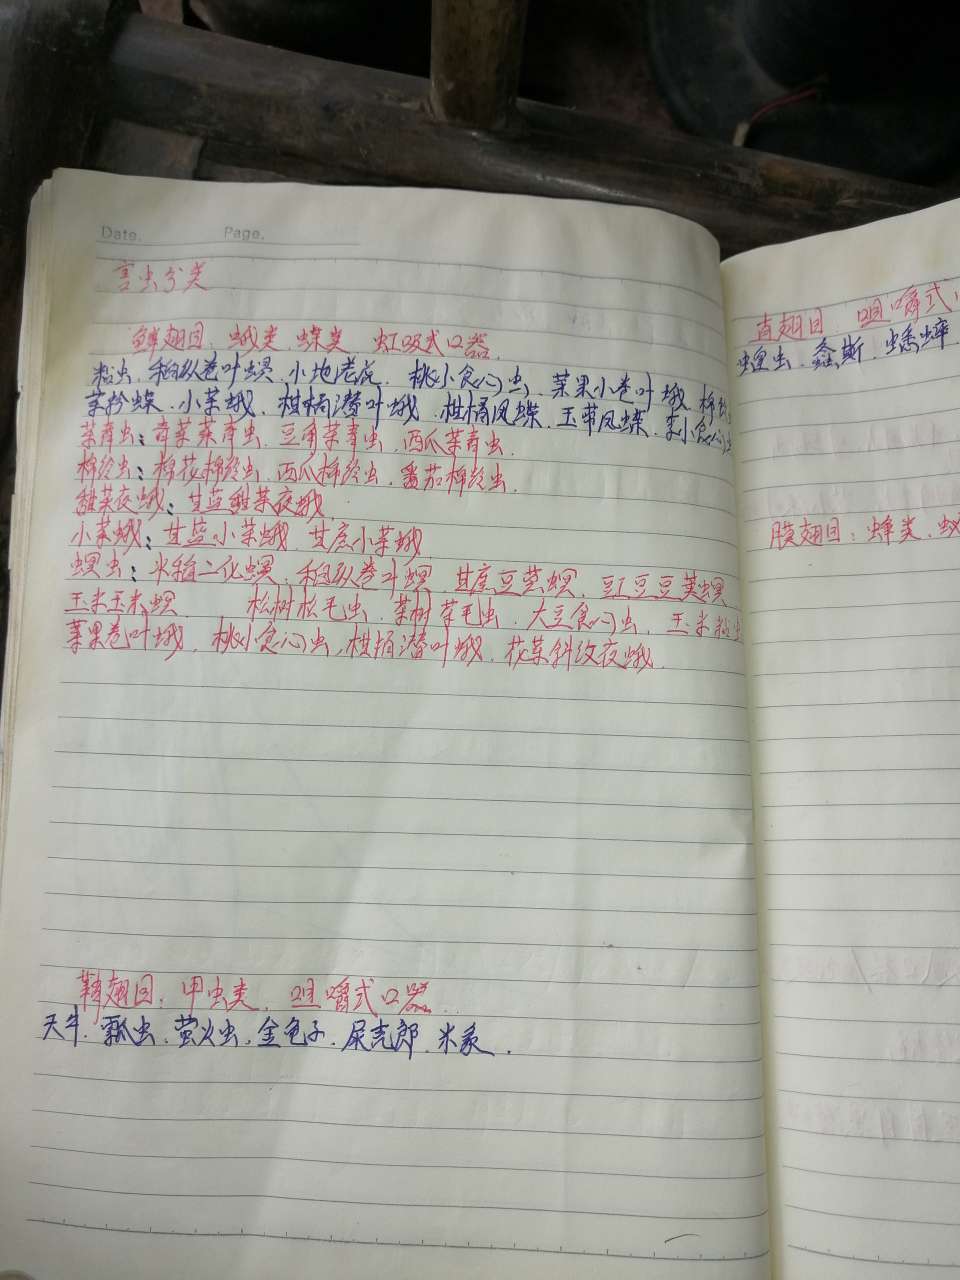 Date.
Page.
害虫分类
鳞翅目. 蛾类. 蝶类. 虹吸式口器.
粘虫. 稻纵卷叶螟. 小地老虎. 桃小食心虫. 苹果小卷叶蛾. 棉铃
菜粉蝶. 小菜蛾. 柑橘潜叶蛾. 柑橘凤蝶. 玉带凤蝶. 李小食心虫
菜青虫: 青菜菜青虫. 豆角菜青虫. 西瓜菜青虫.
棉铃虫: 棉花棉铃虫. 西瓜棉铃虫. 番茄棉铃虫.
甜菜夜蛾: 甘蓝甜菜夜蛾
小菜蛾: 甘蓝小菜蛾. 甘蓝小菜蛾
螟虫: 水稻二化螟. 稻纵卷叶螟. 甘蔗豆荚螟. 豇豆豆荚螟
玉米玉米螟 松树松毛虫. 茶树茶毛虫. 大豆食心虫. 玉米粘虫
苹果卷叶蛾. 桃小食心虫. 柑橘潜叶蛾. 花菜斜纹夜蛾.
鞘翅目. 甲虫类. 咀嚼式口器.
天牛. 瓢虫. 萤火虫. 金龟子. 屎壳郎. 米象.
直翅目. 咀嚼式
蝗虫. 螽斯. 蟋蟀
膜翅目: 蜂类.